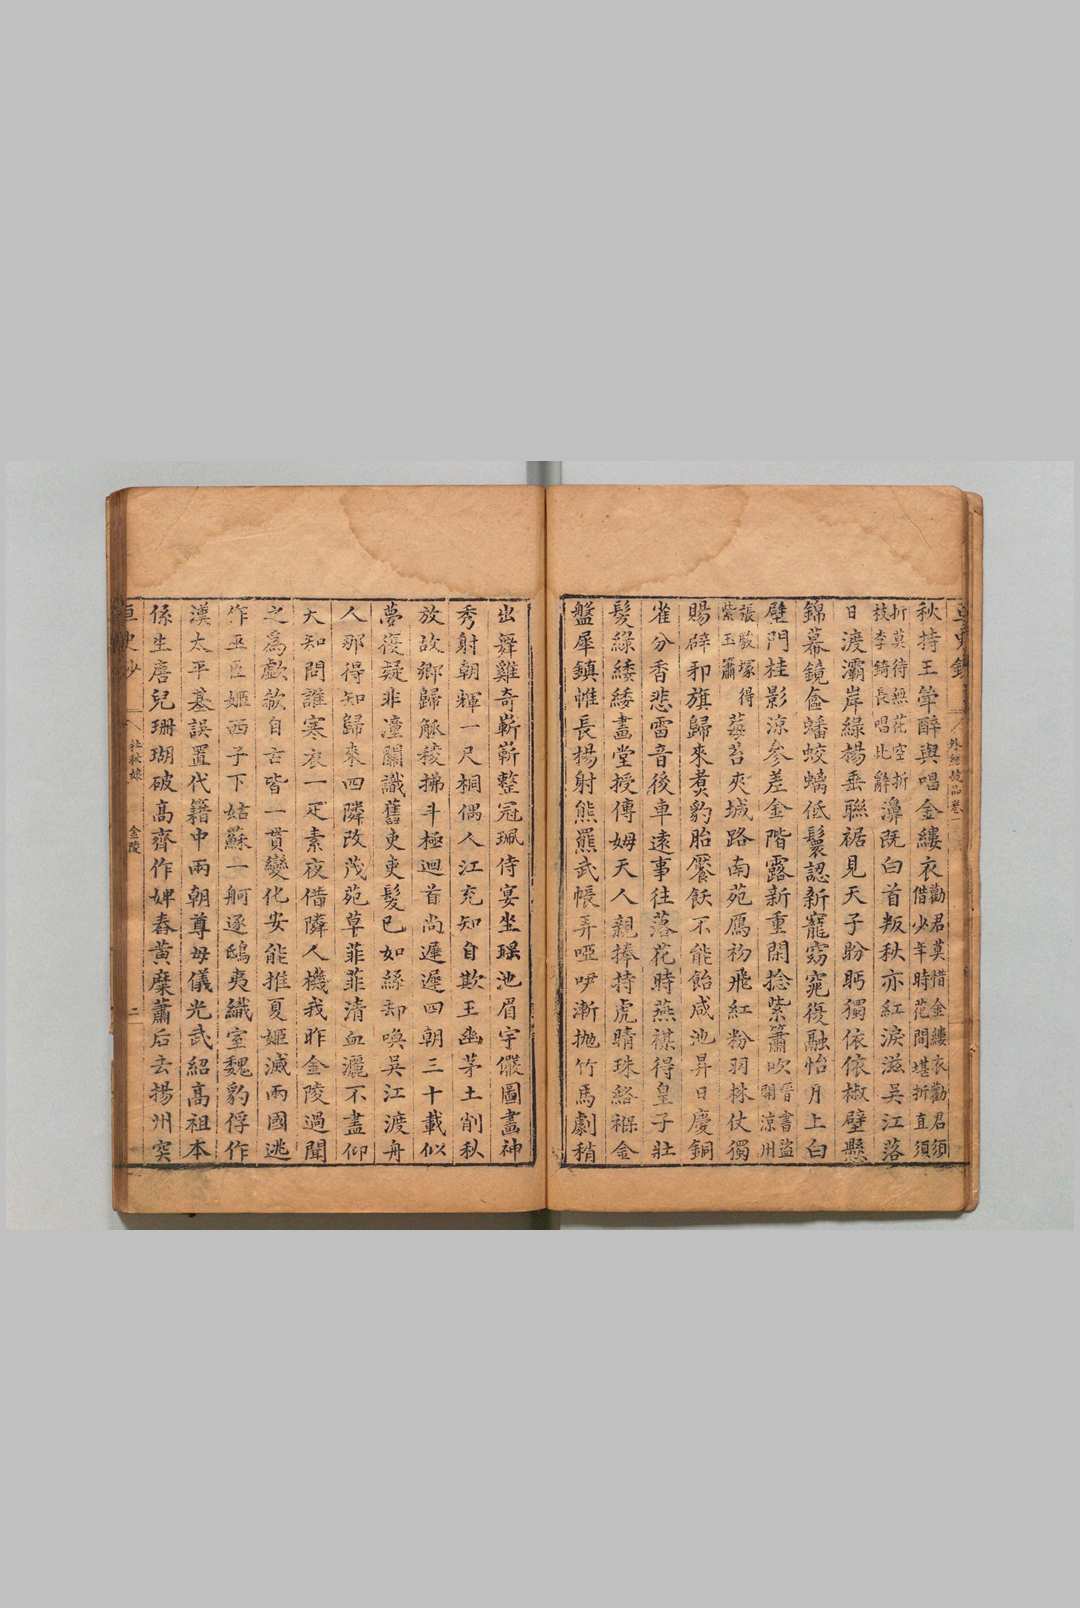 秋持王斝醉與唱金縷衣勸君莫惜金縷衣勸君須惜少年時花間堪折直須
折莫待無花空折枝李錡長唱此辭濞既白首叛秋亦紅淚滋吳江落
日渡灞岸綠楊垂聯裾見天子盼眄獨依依椒壁懸
錦幕鏡奩蟠蛟螭低鬟認新寵窈窕復融怡月上白
壁門桂影涼參差金階露新重閑捻紫簫吹晉書盜開涼用
張駿塚得紫玉簫莓苔夾城路南苑鴈初飛紅粉羽林仗獨
賜辟邪旗歸來煮豹胎饜飫不能飴咸池昇日慶銅
雀分香悲雷音後車遠事往落花時燕禖得皇子壯
髮綠緌緌畫堂授傅姆天人親捧持虎睛珠絡褓金
盤犀鎮帷長揚射熊羆武帳弄啞咿漸拋竹馬劇稍
出舞雞奇嶄嶄整冠珮侍宴坐瑤池眉宇儼圖畫神
秀射朝輝一尺桐偶人江充知自欺王幽茅土削秋
放故鄉歸觚稜拂斗極迴首尚遲遲四朝三十載似
夢復疑非潼關識舊吏吏髮已如絲却喚吳江渡舟
人那得知歸來四隣改茂苑草菲菲清血灑不盡仰
天知問誰寒衣一疋素夜借隣人機我昨金陵過聞
之為歔欷自古皆一貫變化安能推夏姬滅兩國逃
作巫臣姬西子下姑蘇一舸逐鴟夷織室魏豹俘作
漢太平基誤置代籍中兩朝尊母儀光武紹高祖本
係生唐兒珊瑚破高齊作婢舂黃糜蕭后去揚州突
史抄 杜秋娘 金陵 二